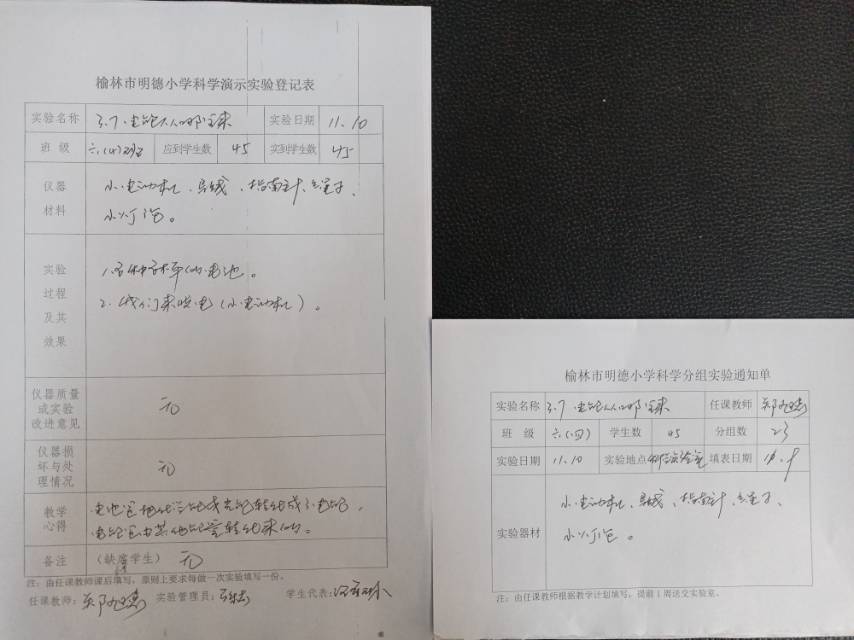 榆林市明德小学科学演示实验登记表
实验名称 3.7.电能从哪里来 实验日期 11.10
班 级 六(四)班 应到学生数 45 实到学生数 45
仪器材料 小电动机、导线、指南针、
小灯泡。
实验过程及其效果 1.各种各样的电池。
2.我们来发电(小电动机)。
仪器质量或实验改进意见 无
仪器损坏与处理情况 无
教学心得 电池是把化学能或光能转化成了电能,
电能是由其他能量转化来的。
备注 (缺席学生) 无
注:由任课教师课后填写,原则上要求每做一次实验填写一份。
任课教师: 实验管理员: 学生代表:
榆林市明德小学科学分组实验通知单
实验名称 3.7.电能从哪里来 任课教师
班 级 六(四) 学生数 45 分组数 23
实验日期 11.10 实验地点 科学实验室 填表日期
实验器材 小电动机、导线、指南针、
小灯泡。
注:由任课教师根据教学计划填写,提前1周送交实验室。